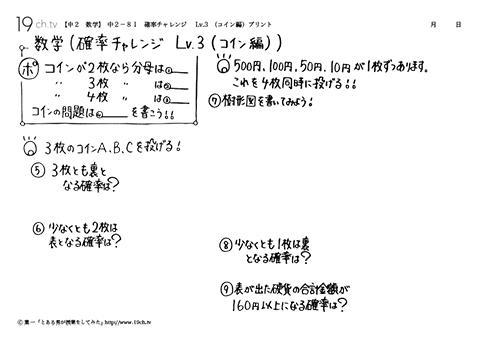 19ch.tv 【中2 数学】 中2-81 確率チャレンジ Lv.3 (コイン編) プリント 月 日
数学(確率チャレンジ Lv.3(コイン編))
ポ コインが2枚なら分母は①
〃 3枚 〃 は②
〃 4枚 〃 は③
コインの問題は④ を書こう!!
3枚のコインA、B、Cを投げる!
⑤ 3枚とも裏と
なる確率は?
⑥ 少なくとも2枚は
表となる確率は?
500円、100円、50円、10円が1枚ずつあります。
これを4枚同時に投げる!!
⑦ 樹形図を書いてみよう!
⑧ 少なくとも1枚は裏
となる確率は?
⑨ 表が出た硬貨の合計金額が
160円以上になる確率は?
© 葉一「とある男が授業をしてみた」http://www.19ch.tv